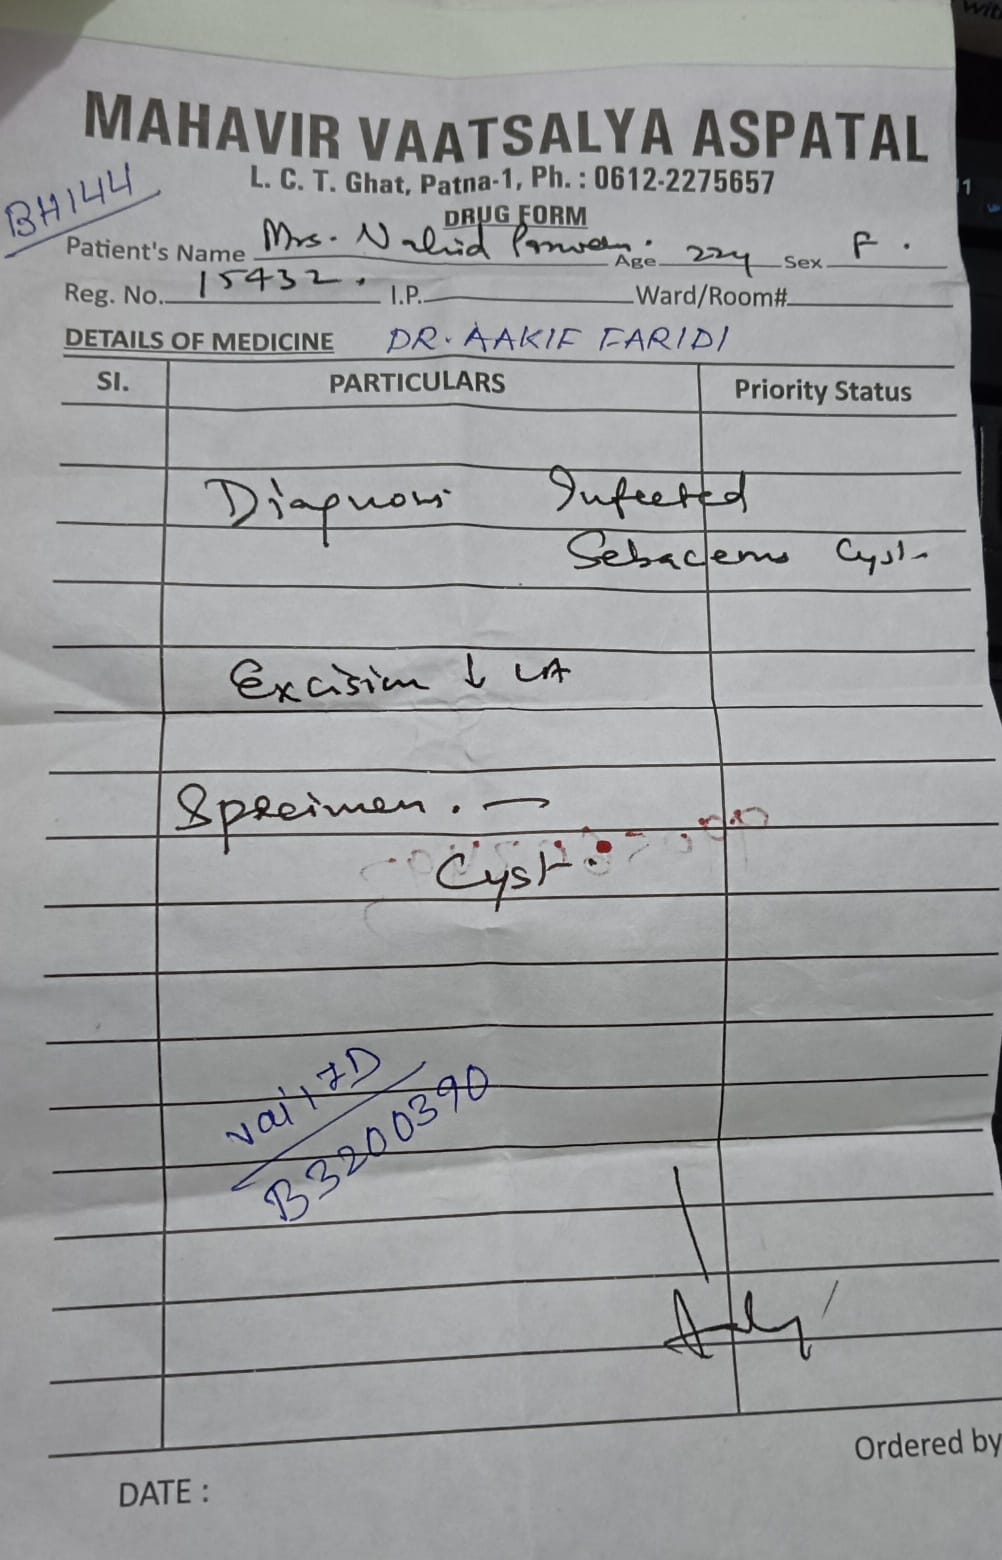 MAHAVIR VAATSALYA ASPATAL
L. C. T. Ghat, Patna-1, Ph. : 0612-2275657
BH144
DRUG FORM
Patient's Name Mrs. Nahid Parween. Age 22y Sex F.
Reg. No. 15432. I.P. Ward/Room#
DETAILS OF MEDICINE DR. AAKIF FARIDI
SI. PARTICULARS Priority Status
Diagnosis Infected
Sebaceous Cyst
Excision ↓ LA
Specimen. —
Cyst.
B3200390
Ordered by
DATE :